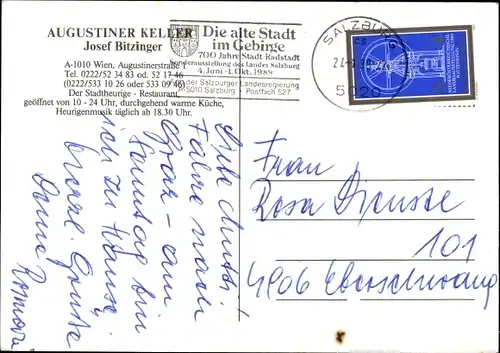 AUGUSTINER KELLER
Josef Bitzinger
A-1010 Wien, Augustinerstraße 1
Tel. 0222/52 34 83 od. 52 17 46
(0222/533 10 26 oder 533 09 46)
Der Stadtheurige - Restaurant,
geöffnet von 10 - 24 Uhr, durchgehend warme Küche,
Heurigenmusik täglich ab 18.30 Uhr.
Die alte Stadt
im Gebirge
700 Jahre Stadt Radstadt
Sonderausstellung des Landes Salzburg
4. Juni - 1. Okt. 1989
der Salzburger Landesregierung
5010 Salzburg Postfach 527
SALZBURG
5020
Liebe Mutti!
Fahre nach
Graz - am
Sonntag bin
ich zu Hause.
Grüße
Deine
Frau
Rosa
101
4906 Eberschwang